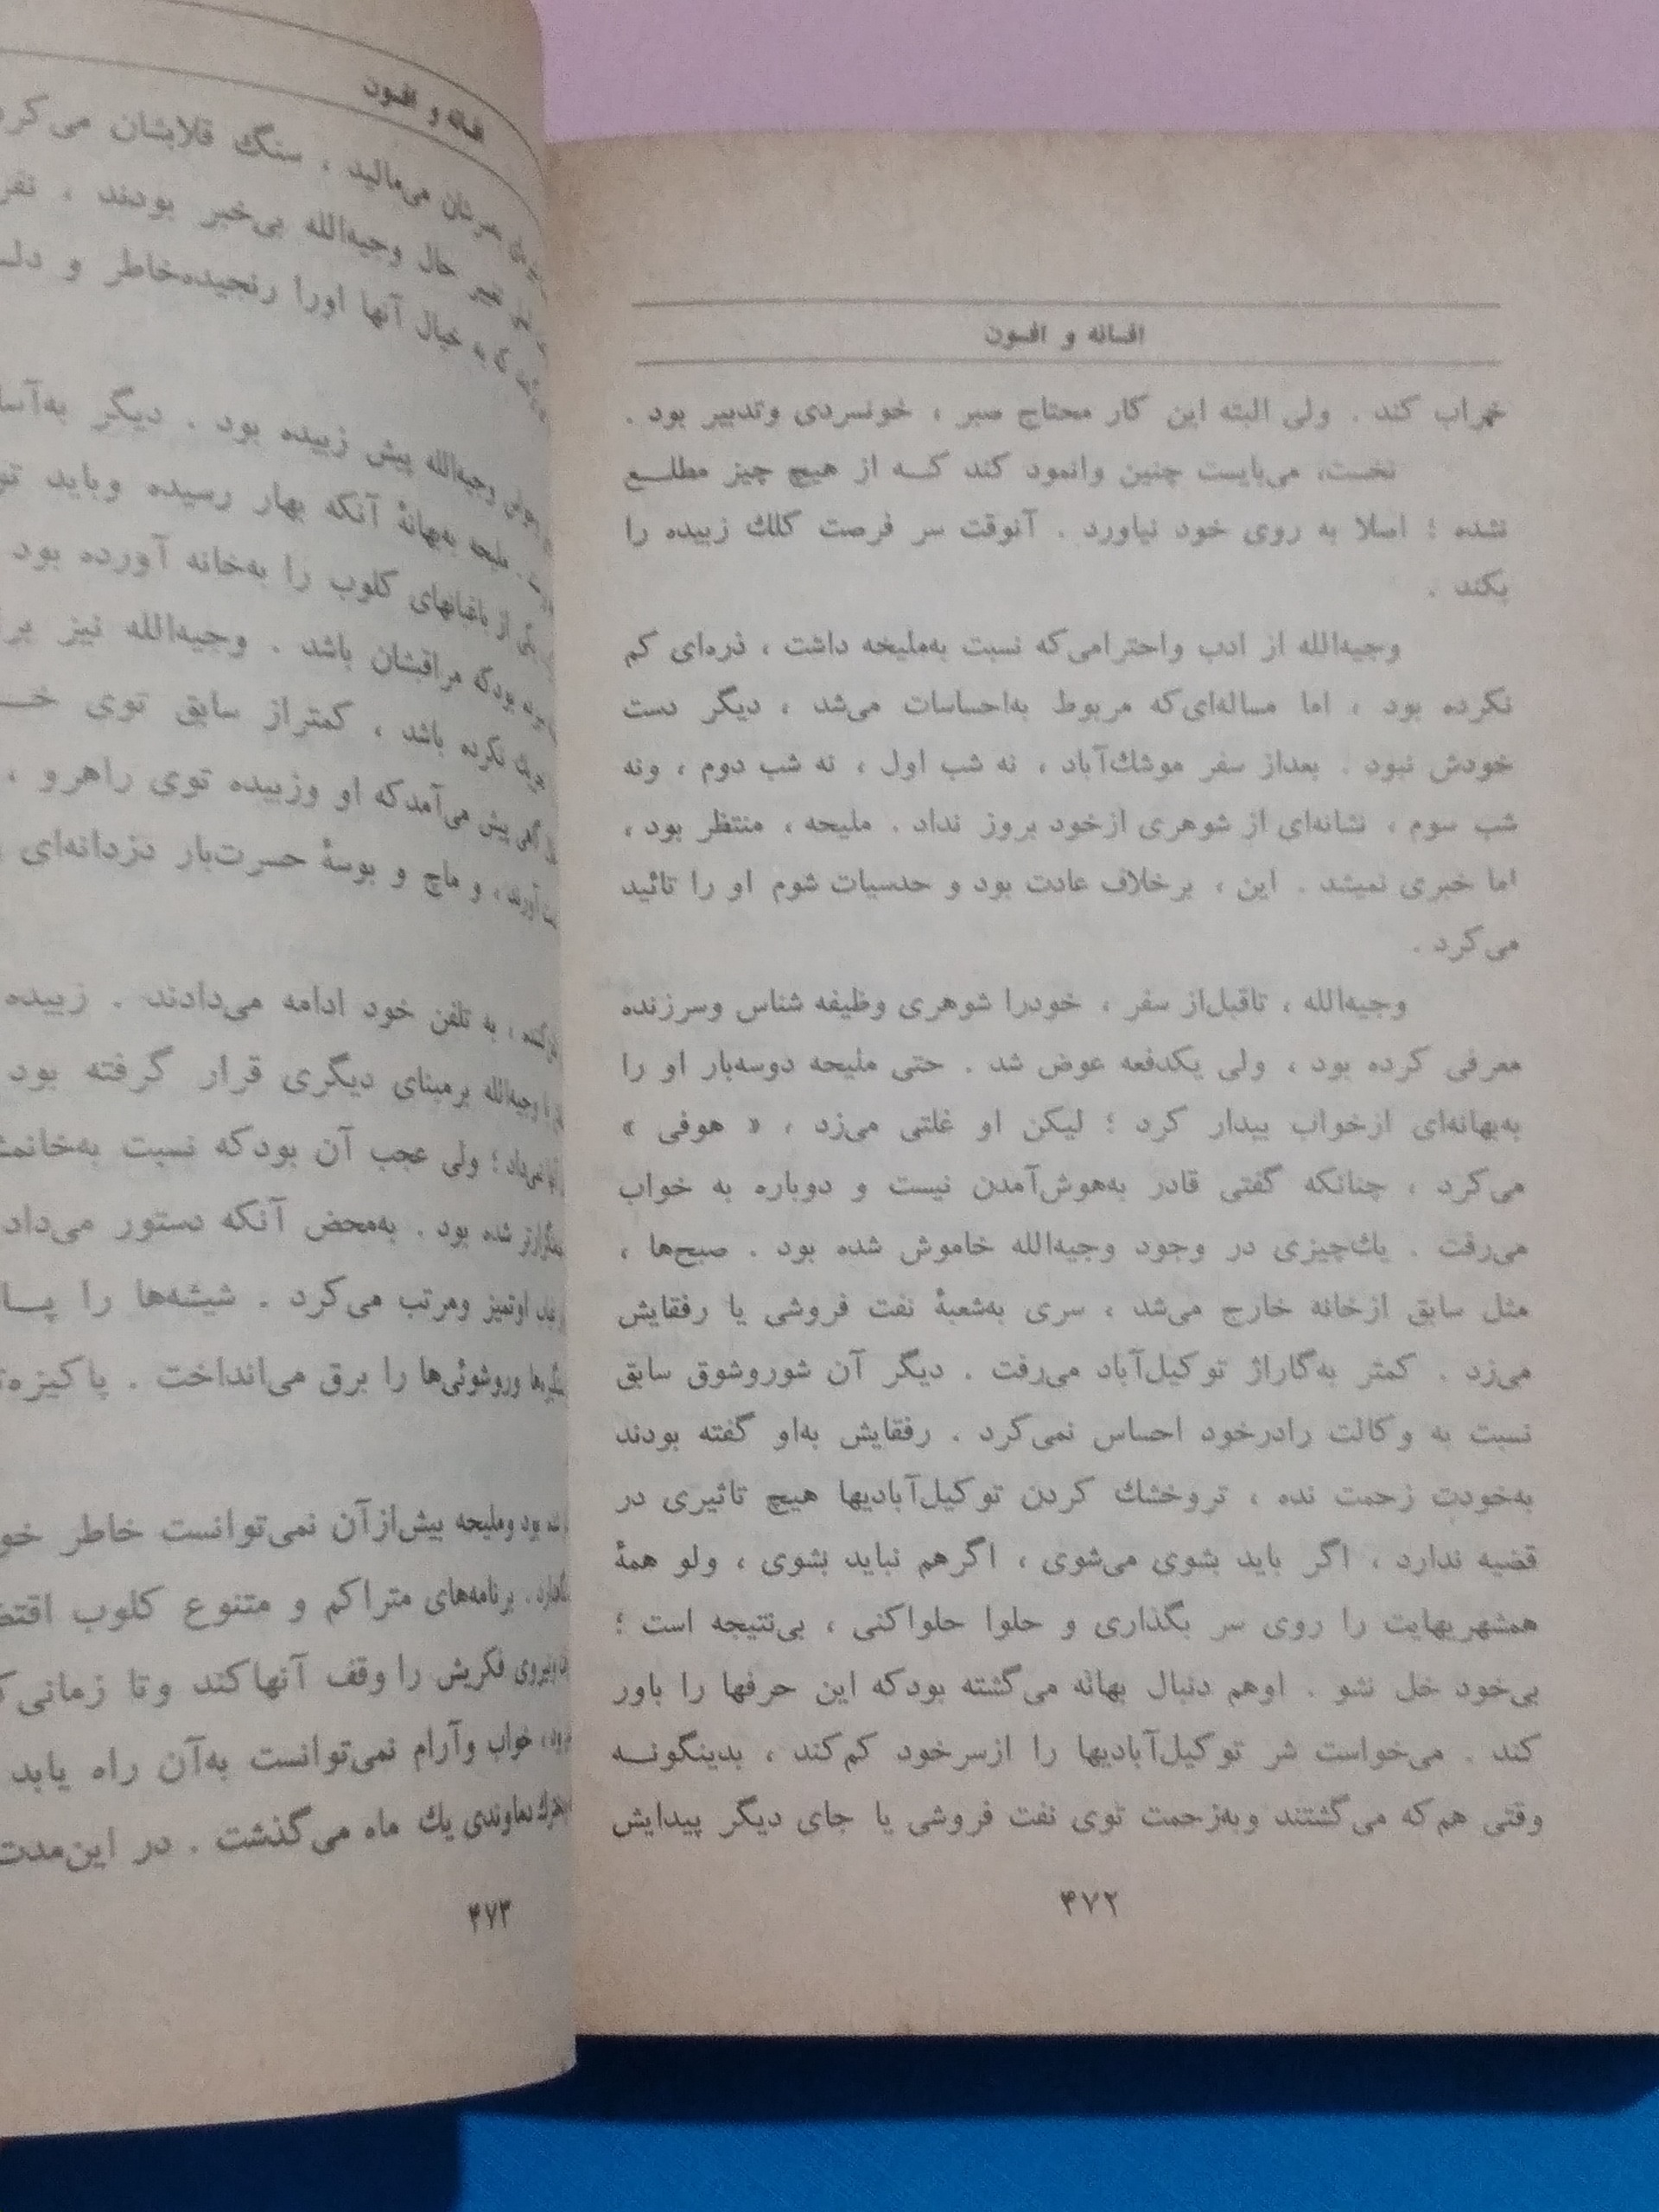 افسانه و افسون
خراب کند . ولی البته این کار محتاج صبر ، خونسردی وتدبیر بود .
نخست، می‌بایست چنین وانمود کند کــه از هیچ چیز مطلــع
نشده ؛ اصلا به روی خود نیاورد . آنوقت سر فرصت کلك زبیده را
بکند .
وجیه‌الله از ادب واحترامی‌که نسبت به‌ملیحه داشت ، ذره‌ای کم
نکرده بود ، اما مساله‌ای‌که مربوط به‌احساسات می‌شد ، دیگر دست
خودش نبود . بعداز سفر موشك‌آباد ، نه شب اول ، نه شب دوم ، ونه
شب سوم ، نشانه‌ای از شوهری ازخود بروز نداد . ملیحه ، منتظر بود ،
اما خبری نمیشد . این ، برخلاف عادت بود و حدسیات شوم او را تائید
می‌کرد .
وجیه‌الله ، تاقبل‌از سفر ، خودرا شوهری وظیفه شناس وسرزنده
معرفی کرده بود ، ولی یکدفعه عوض شد . حتی ملیحه دوسه‌بار او را
به‌بهانه‌ای ازخواب بیدار کرد ؛ لیکن او غلتی می‌زد ، « هوفی »
می‌کرد ، چنانکه گفتی قادر به‌هوش‌آمدن نیست و دوباره به خواب
می‌رفت . یك‌چیزی در وجود وجیه‌الله خاموش شده بود . صبح‌ها ،
مثل سابق ازخانه خارج می‌شد ، سری به‌شعبهٔ نفت فروشی یا رفقایش
می‌زد . کمتر به‌گاراژ توکیل‌آباد می‌رفت . دیگر آن شوروشوق سابق
نسبت به وکالت رادرخود احساس نمی‌کرد . رفقایش به‌او گفته بودند
به‌خودت زحمت نده ، تروخشك کردن توکیل‌آبادیها هیچ تاثیری در
قضیه ندارد ، اگر باید بشوی می‌شوی ، اگرهم نباید بشوی ، ولو همهٔ
همشهریهایت را روی سر بگذاری و حلوا حلواکنی ، بی‌نتیجه است ؛
بی‌خود خل نشو . اوهم دنبال بهانه می‌گشته بودکه این حرفها را باور
کند . می‌خواست شر توکیل‌آبادیها را ازسرخود کم‌کند ، بدینگونــه
وقتی هم‌که می‌گشتند وبه‌زحمت توی نفت فروشی یا جای دیگر پیدایش
۴۷۲
افسانه و افسون
می‌مالید ، سنگ قلابشان می‌کرد
حال وجیه‌الله بی‌خبر بودند ، نفر
که به خیال آنها اورا رنجیده‌خاطر و دلـ
وجیه‌الله پیش زبیده بود . دیگر به‌آسا
ملیحه به‌بهانهٔ آنکه بهار رسیده وباید تو
از باغبانهای کلوب را به‌خانه آورده بود
بودکه مراقبشان باشد . وجیه‌الله نیز برا
نکرده باشد ، کمتراز سابق توی خــ
گاهی پیش می‌آمدکه او وزبیده توی راهرو ،
آورند ، و ماچ و بوسهٔ حسرت‌بار دزدانه‌ای
به تلفن خود ادامه می‌دادند . زبیده
وجیه‌الله برمبنای دیگری قرار گرفته بود
نمی‌داد ؛ ولی عجب آن بودکه نسبت به‌خانمش
شده بود . به‌محض آنکه دستور می‌داد
اوتمیز ومرتب می‌کرد . شیشه‌ها را پــا
وروشوئی‌ها را برق می‌انداخت . پاکیزه‌تـ
بود وملیحه بیش‌ازآن نمی‌توانست خاطر خو
برنامه‌های متراکم و متنوع کلوب اقتض
فکریش را وقف آنهاکند وتا زمانی‌کـ
خواب وآرام نمی‌توانست به‌آن راه یابد
دماوندی یك ماه می‌گذشت . در این‌مدت
۴۷۳